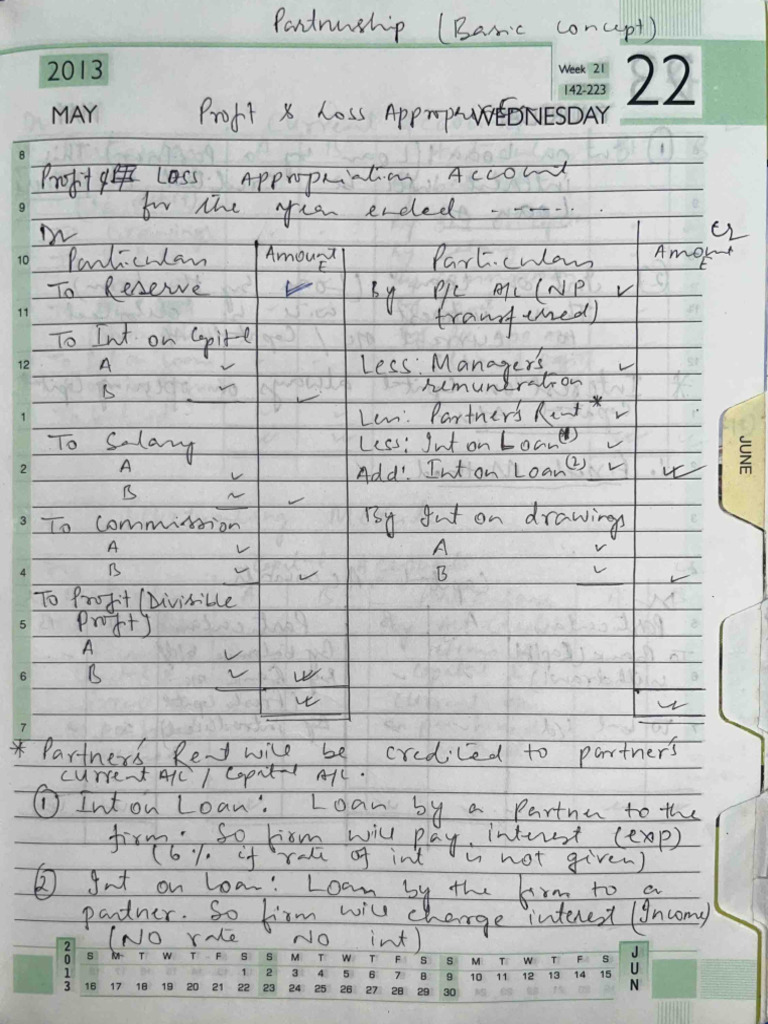 Partnership (Basic concept)
2013 Week 21 22
142-223
MAY Profit & Loss Appropriation WEDNESDAY
8
Profit & Loss Appropriation Account
9 for the year ended - - - - - .
Dr Cr
10 Particulars Amount ₹ Particulars Amount ₹
To Reserve ✓ By P/L A/c (NP ✓
11 transferred)
To Int on Capital
12 A ✓ Less: Manager's ✓
B ✓ ✓ remuneration
1 Less: Partner's Rent * ✓
To Salary Less: Int on Loan (1) ✓
2 A ✓ Add: Int on Loan (2) ✓ ✓
B ✓ ✓
3 To Commission By Int on drawings
A ✓ A ✓
4 B ✓ ✓ B ✓ ✓
To Profit (Divisible
5 Profit)
A ✓
6 B ✓ ✓
✓ ✓
7
* Partner's Rent will be credited to partner's
current A/c / Capital A/c.
① Int on Loan: Loan by a partner to the
firm. So firm will pay interest (exp)
(6% if rate of int is not given)
② Int on Loan: Loan by the firm to a
partner. So firm will charge interest (Income)
(NO rate NO int)
JUNE
2013 S M T W T F S S M T W T F S S M T W T F S S M T W T F S JUN
1 2 3 4 5 6 7 8 9 10 11 12 13 14 15
16 17 18 19 20 21 22 23 24 25 26 27 28 29 30